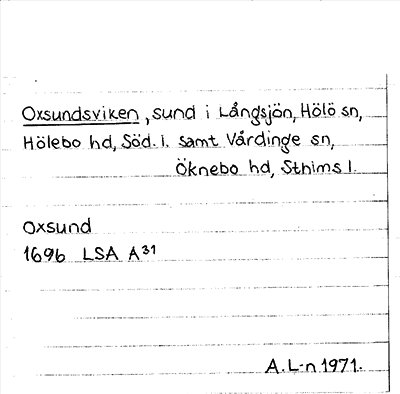 Oxsundsviken, sund i Långsjön, Hölö sn,
Hölebo hd, Söd. l. samt Vårdinge sn,
Öknebo hd, Sthlms l.
Oxsund
1696 LSA A³¹
A.L-n 1971.